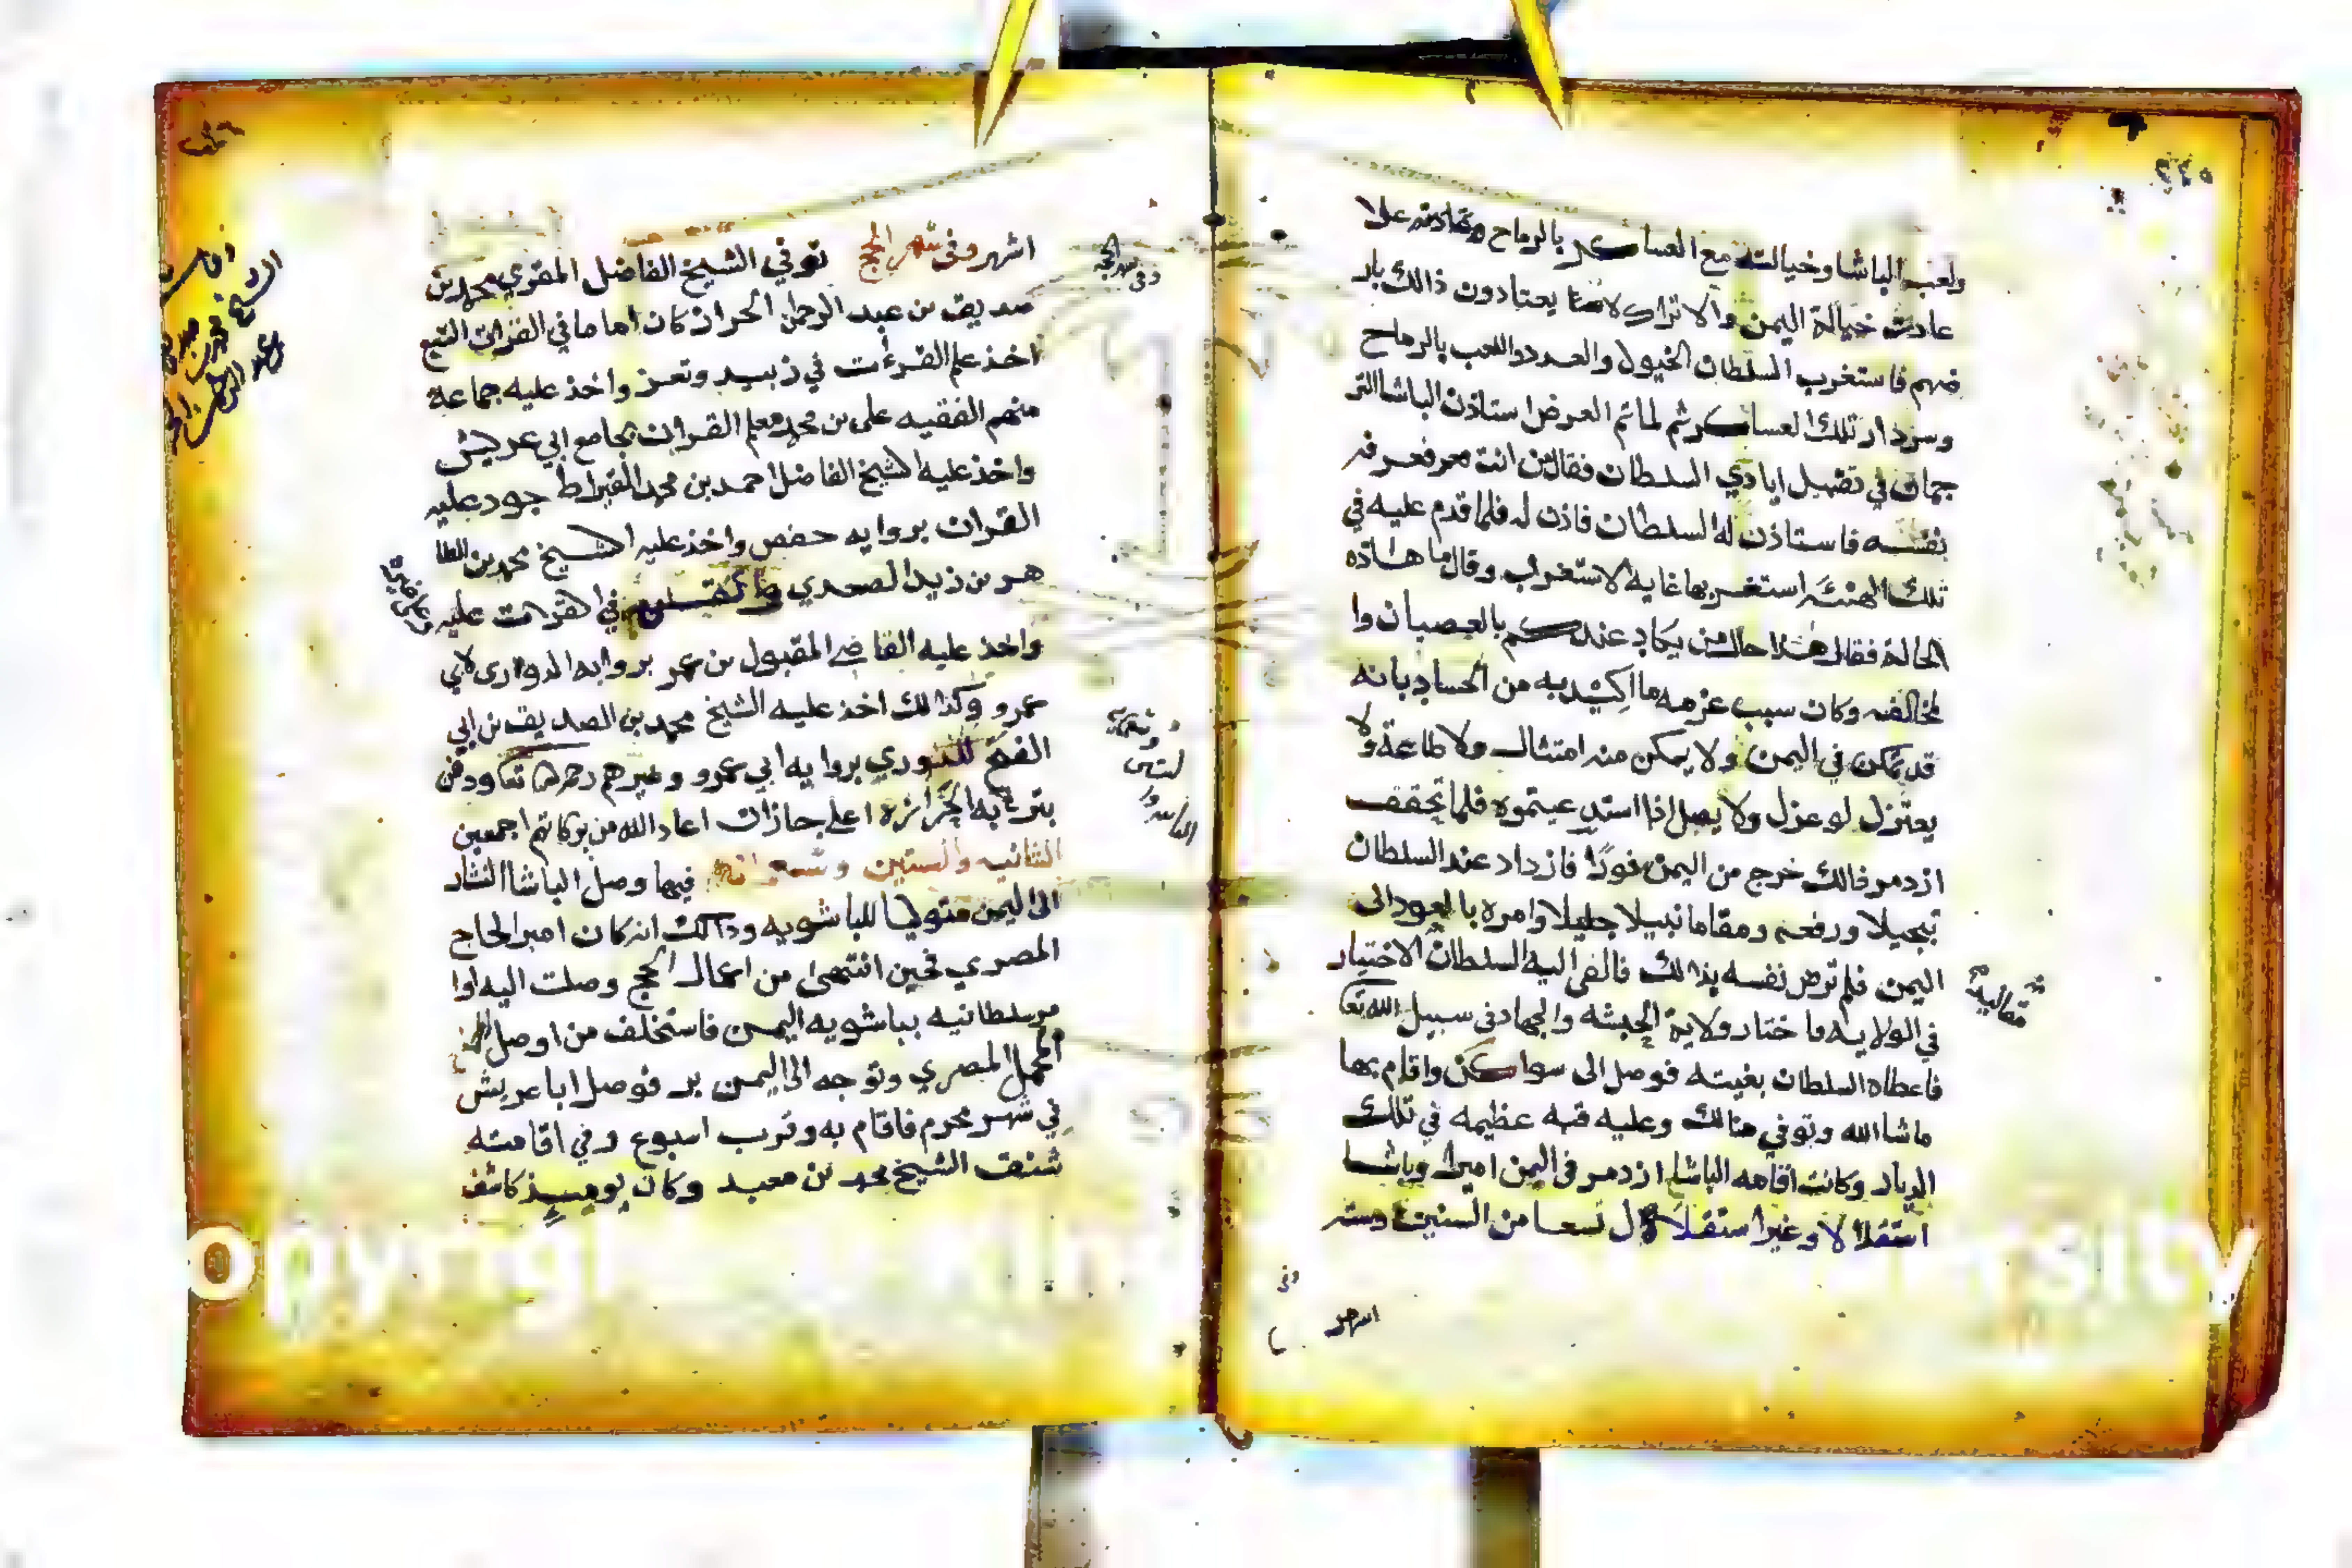 ٢٤٥
ولعب الباشا وخيالته مع العساكر بالرماح وعادته علا
عادت خيالة اليمن والاتراك لا يعتادون ذالك بار
ضهم فاستغرب السلطان الخيول والعدد واللعب بالرماح
وسردار تلك العساكر ثم لما تم العرض استاذن الباشا التر
جمان في تقبيل ايادي السلطان فقال من انت فعرفه
نفسه فاستاذن له السلطان فاذن له فلما قدم عليه في
تلك الهيئه استغربها غايه الاستغراب وقال ما هاذه
الحالة فقال هذا حال من يكاد عندكم بالعصيان وا
لمخالفه وكان سبب عزمه ما اكيد به من الحساد بانه
قد تمكن في اليمن ولا يمكن منه امتثال ولا طاعة ولا
يعتزل لو عزل ولا يصل اذا استدعيتموه فلما تحقق
ازدمر ذالك خرج من اليمن فورًا فازداد عند السلطان
تبجيلا ورفعه ومقاما نبيلا جليلا وامره بالعود الى
اليمن فلم ترض نفسه بذالك فالقى اليه السلطان الاختيار
في الولايه فاختار ولاية الحبشه والجهاد في سبيل الله تعا
فاعطاه السلطان بغيته فوصل الى سواكن واقام بها
ماشاالله وتوفي هنالك وعليه قبه عظيمه في تلك
الديار وكانت اقامه الباشا ازدمر في اليمن اميرا وباشا
استقلالا وغير استقلال تسعا من السنين وسته
اشهر
اشهر وفى شهر الحج توفي الشيخ الفاضل المقري محمد بن
صديق بن عبد الرحمن الحران كان اماما في القران السبع
اخذ علم القرءات في زبيد وتعز واخذ عليه جماعة
منهم الفقيه على بن محمد معلم القران بجامع ابي عريش
واخذ عليه الشيخ الفاضل احمد بن محمد القيراط جود عليه
القران بروايه حفص واخذ عليه الشيخ محمد بن الطا
هر بن زيد الصعدي في القرات عليه
واخذ عليه القاضي المقبول بن عمر بروايه الدوارى لابي
عمرو وكذالك اخذ عليه الشيخ محمد بن الصديق بن ابي
الفتح بروايه ابي عمرو وغيرهم رحمهم الله تعا ودفن
بتربه اعلى جازان اعاد الله من بركاتهم اجمعين
الثانيه والستين وتسعمائة فيها وصل الباشا النشار
الى اليمن متوليا للباشويه وذالك انه كان امير الحاج
المصري فحين انتهى من اعمال الحج وصلت اليه اوا
مر سلطانيه بباشويه اليمن فاستخلف من اوصل
المحمل المصري وتوجه الى اليمن بر فوصل ابا عريش
في شهر محرم فاقام به وقرب اسبوع وفي اقامته
شنق الشيخ محمد بن معبد وكان يوميذ كاشف